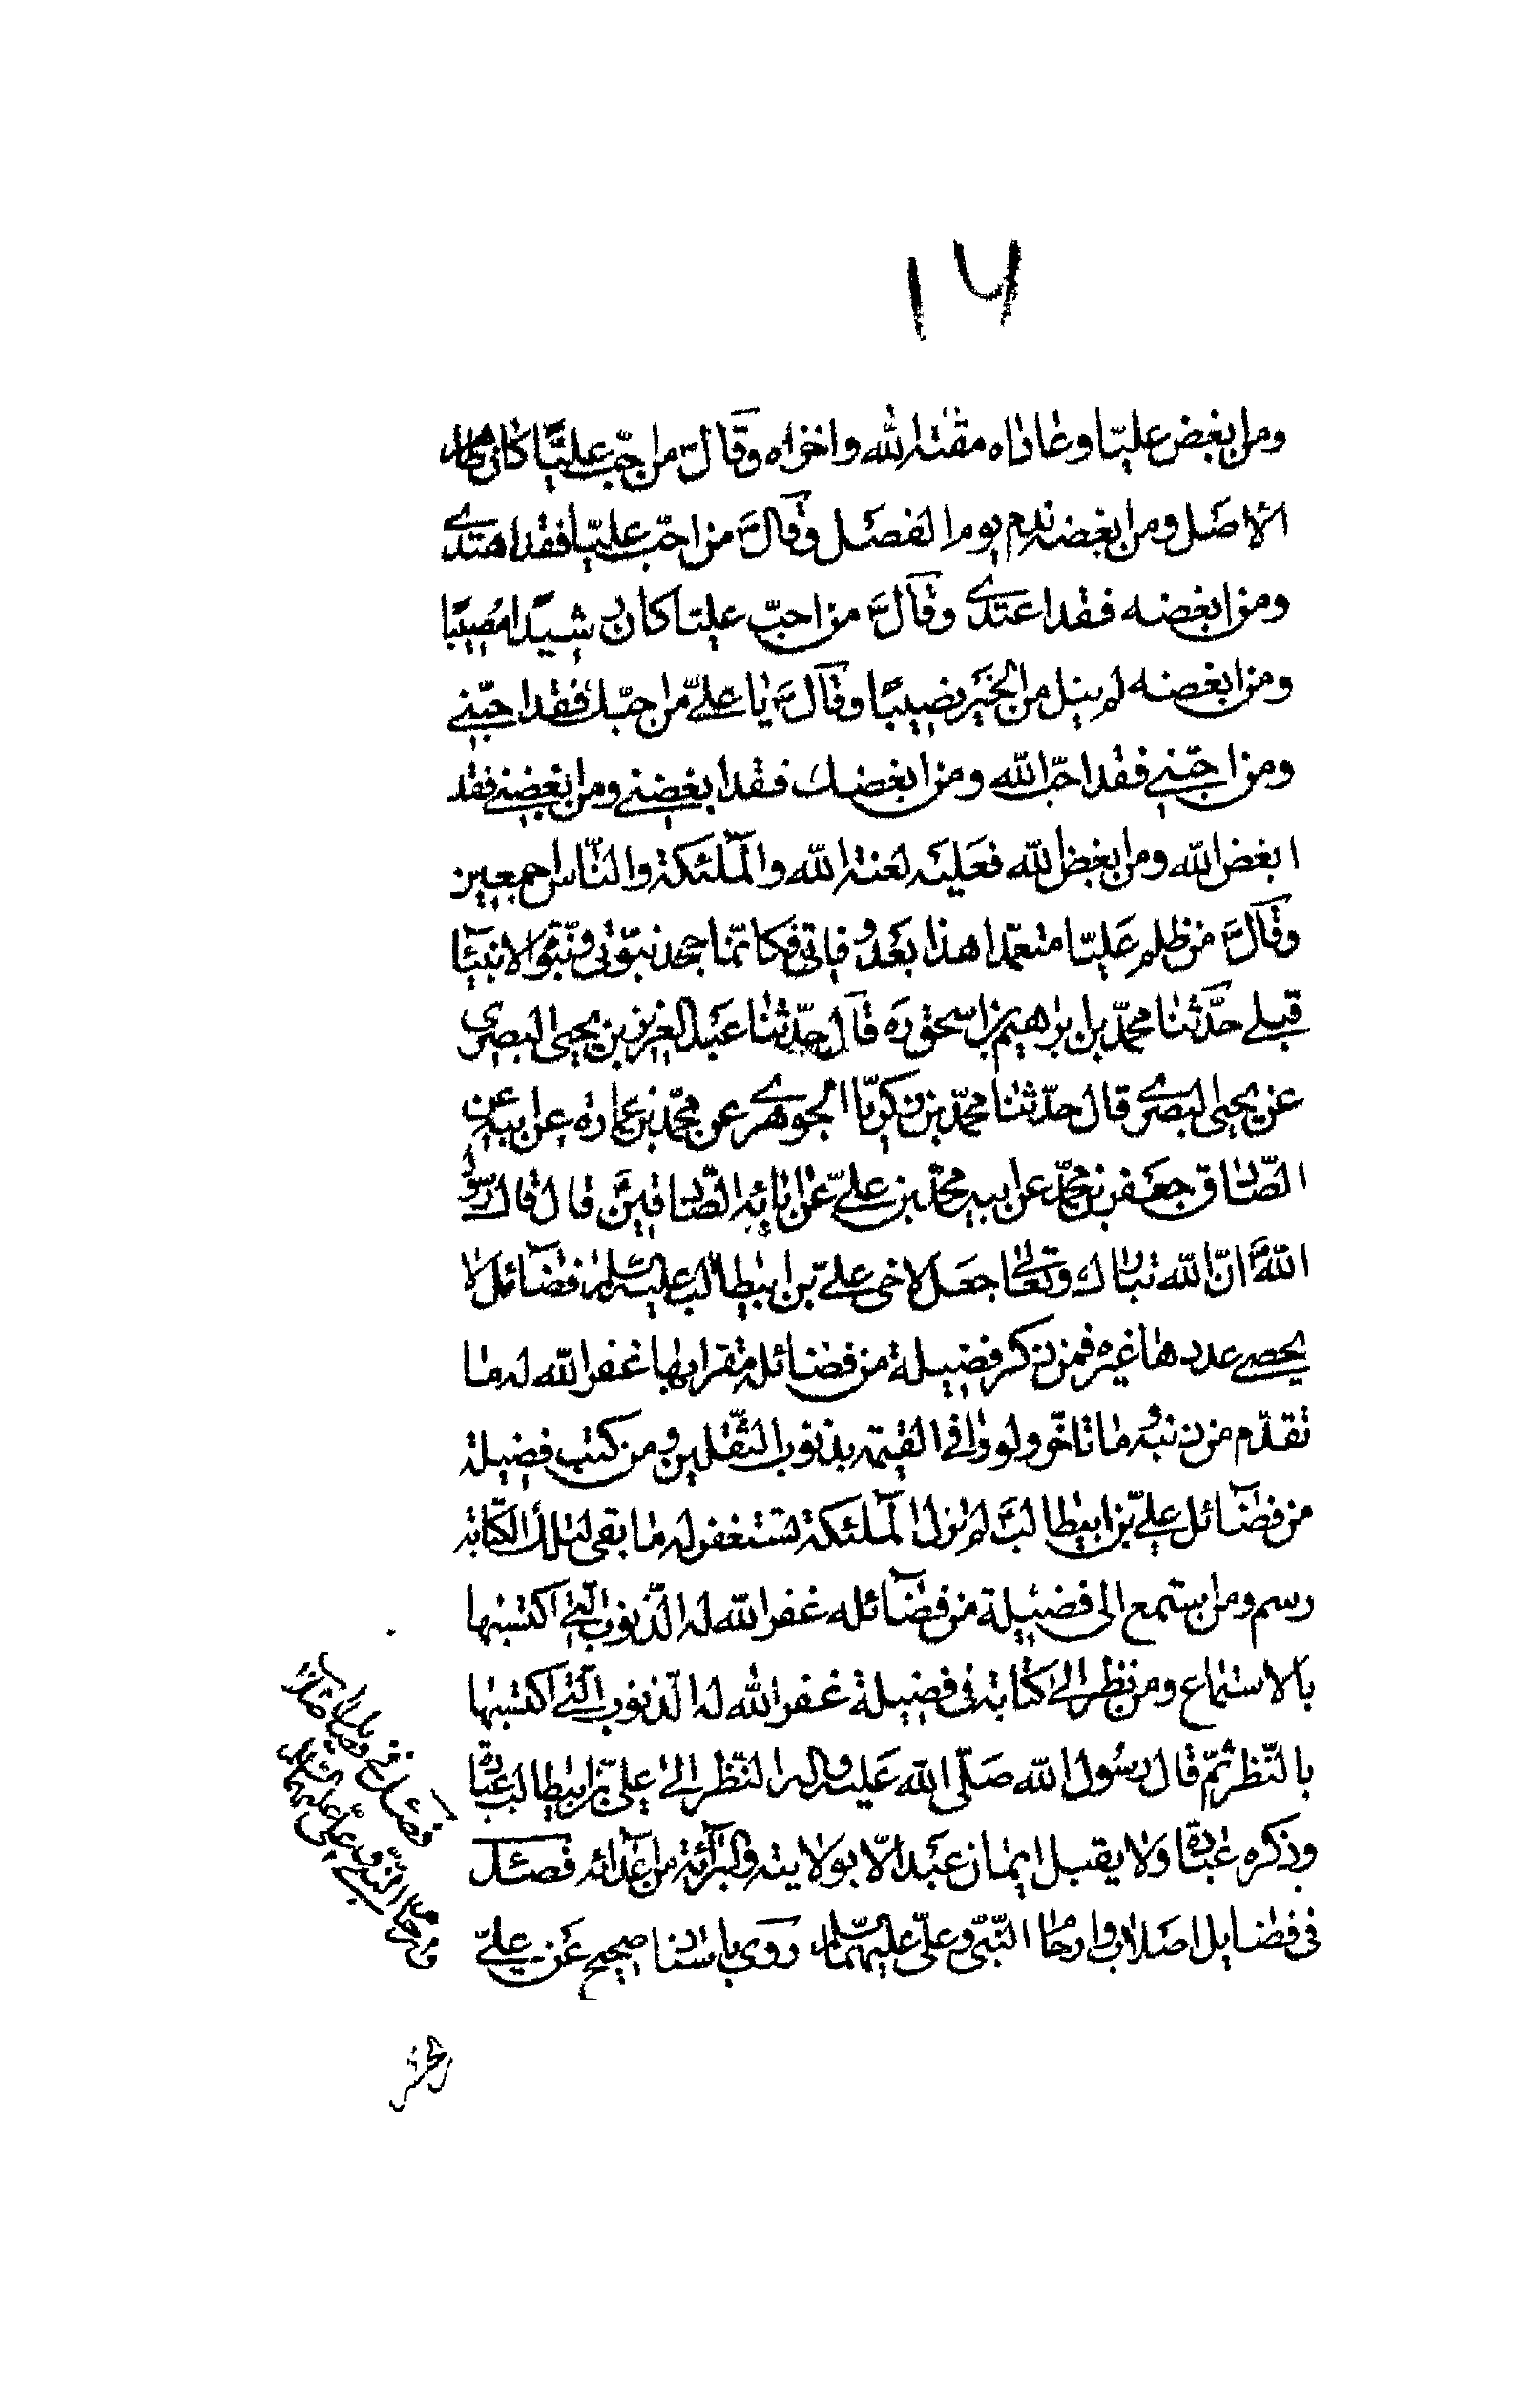 ١٦
ومن ابغض عليّا وعاداه مقته الله واخزاه وقالؐ من احبّ عليّا كان طاهر
الاصل ومن ابغضه ندم يوم الفصل وقالؐ من احبّ عليّا فقد اهتدى
ومن ابغضه فقد اعتدى وقالؐ من احبّ عليّا كان رشيدا مصيبا
ومن ابغضه لم ينل من الخير نصيبًا وقالؐ يا علىّ من احبّك فقد احبّنى
ومن احبّنى فقد احبّ الله ومن ابغضك فقد ابغضنى ومن ابغضنى فقد
ابغض الله ومن ابغض الله فعليه لعنة الله والملئكة والنّاس اجمعين
وقالؐ من ظلم عليّا متعمّدا هذا بعد وفاتى فكانّما جحد نبوّتى ونبوّة الانبيآء
قبلى حدّثنا محمّد بن ابراهيم بن اسحق ره قال حدّثنا عبد العزيز بن يحيى البصرى
عن يحيى البصرى قال حدّثنا محمّد بن زكريّا الجوهرى عن محمّد بن عمارة عن ابيه عن
الصّادق جعفر بن محمّد عن ابيه محمّد بن علىّ عن ابائه الصّادقينؑ قال قال رسول
اللهؐ انّ الله تبارك وتعالى جعل لاخى علىّ بن ابيطالب عليه السّلم فضآئل لا
يحصى عددها غيره فمن ذكر فضيلة من فضائله مقرا بها غفر الله له ما
تقدّم من ذنبه وما تاخّر ولو وافى القيمة بذنوب الثّقلين ومن كتب فضيلة
من فضآئل علىّ بن ابيطالبؑ لم تزل الملئكة تستغفر له ما بقى لتلك الكتابة
رسم ومن يستمع الى فضيلة من فضآئله غفر الله له الذّنوب الّتى اكتسبها
بالاستماع ومن نظر الى كتابة فى فضيلة غفر الله له الذّنوب الّتى اكتسبها
بالنّظر ثمّ قال رسول الله صلّى الله عليه واله النّظر الى علىّ بن ابيطالب عبادة
وذكره عبادة ولا يقبل ايمان عبد الّا بولايته والبرآئة من اعدآئه فصل
فى فضايل اصلاب وارحام النّبىّ وعلىّ عليهما السّلم روى باسناد صحيح عن علىّ
فصل فى